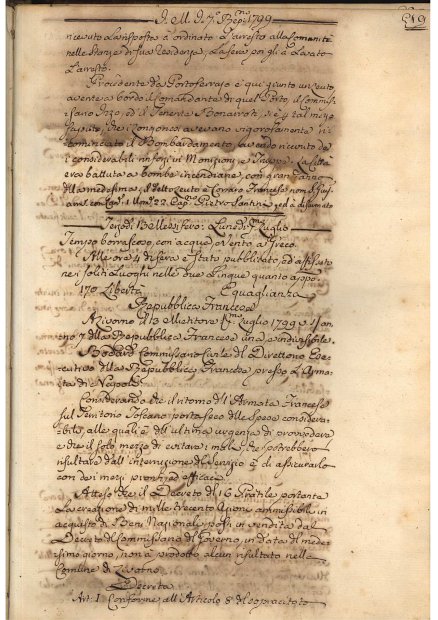 I. M. I. 7.º 1799
ricevuto La risposta è ordinato L'arresto alla
nelle Stanze di sua residenza, La sera poi gli è Levato
L'arresto.
Proveniente da Portoferraio è qui giunto un
avente a bordo il Comandante di quel Porto, il Commis-
ed il Tenente e
avevano rigorosamente ri-
cominciato il Bombardamento, avendo ricevuto de
considerabili rinforzi di Monizioni e Truppe. La Città
era battuta a bombe incendiarie con gran danno
della medesima. Il detto è Corsaro Francese nom.º
con 22. Cap.º Pietro Santini ed è disarmato
13 Messifero: Lunedì p.º Luglio
Tempo borrascoso, con acque e Vento a Greco.
Alle ore 4 di sera è stato pubblicato, ed affisso
nei soliti Luoghi nelle due Lingue quanto appo.
Libertà Equaglianza
Repubblica Francese
Livorno Li 13 Metitore p.º Luglio 1799 An-
no 7 della Repubblica Francese una e indivisibile.
Commissario Civile del Direttorio Ese-
cutivo della Repubblica Francese presso L'Arma-
ta di Napoli
Considerando che il ritorno dell'Armata Francese
sul Territorio Toscano porta seco delle Spese considera-
bili, alle quali è dell'ultima urgenza di provvedere
e che il solo mezzo di evitare i mali che potrebbero
risultare dall'interruzione del servizio è di assicurarlo
con dei mezzi pronti ed efficaci
Atteso che il Decreto del 16 Pratile portante
La creazione di mille trecento Azioni ammissibili in
acquisto di Beni Nazionali posti in vendita dal
Decreto del Commissario del Governo, in data del mede-
simo giorno, non à prodotto alcun risultato nella
Comune di Livorno.
Decreta
Art: I Conforme all'Articolo 8 del sopracitato